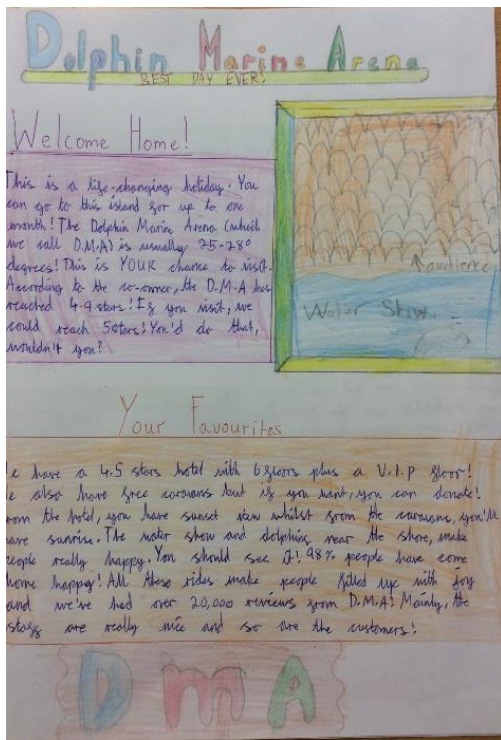 Dolphin Marine Arena
BEST DAY EVER!
Welcome Home!
This is a life-changing holiday. You
can go to this island for up to one
month! The Dolphin Marin Arena (which
we call D.M.A) is usually 25-28°
degrees! This is YOUR chance to visit.
According to the co-owner, the D.M.A has
reached 4.9 stars! If you visit, we
could reach 5stars! You'd do that,
wouldn't you?
audience
Water Show
Your Favourites
e have a 4.5 stars hotel with 6 floors plus a V.I.P floor!
e also have free caravans but if you want, you can donate!
rom the hotel, you have sunset view whilst from the caravans, you'll
ave sunrise. The water show and dolphins near the shore, make
eople really happy. You should see it! 98% people have come
home happy! All these rides make people filled up with joy
and we've had over 20,000 reviews from D.M.A! Mainly, the
staff are really nice and so are the customers!
DMA